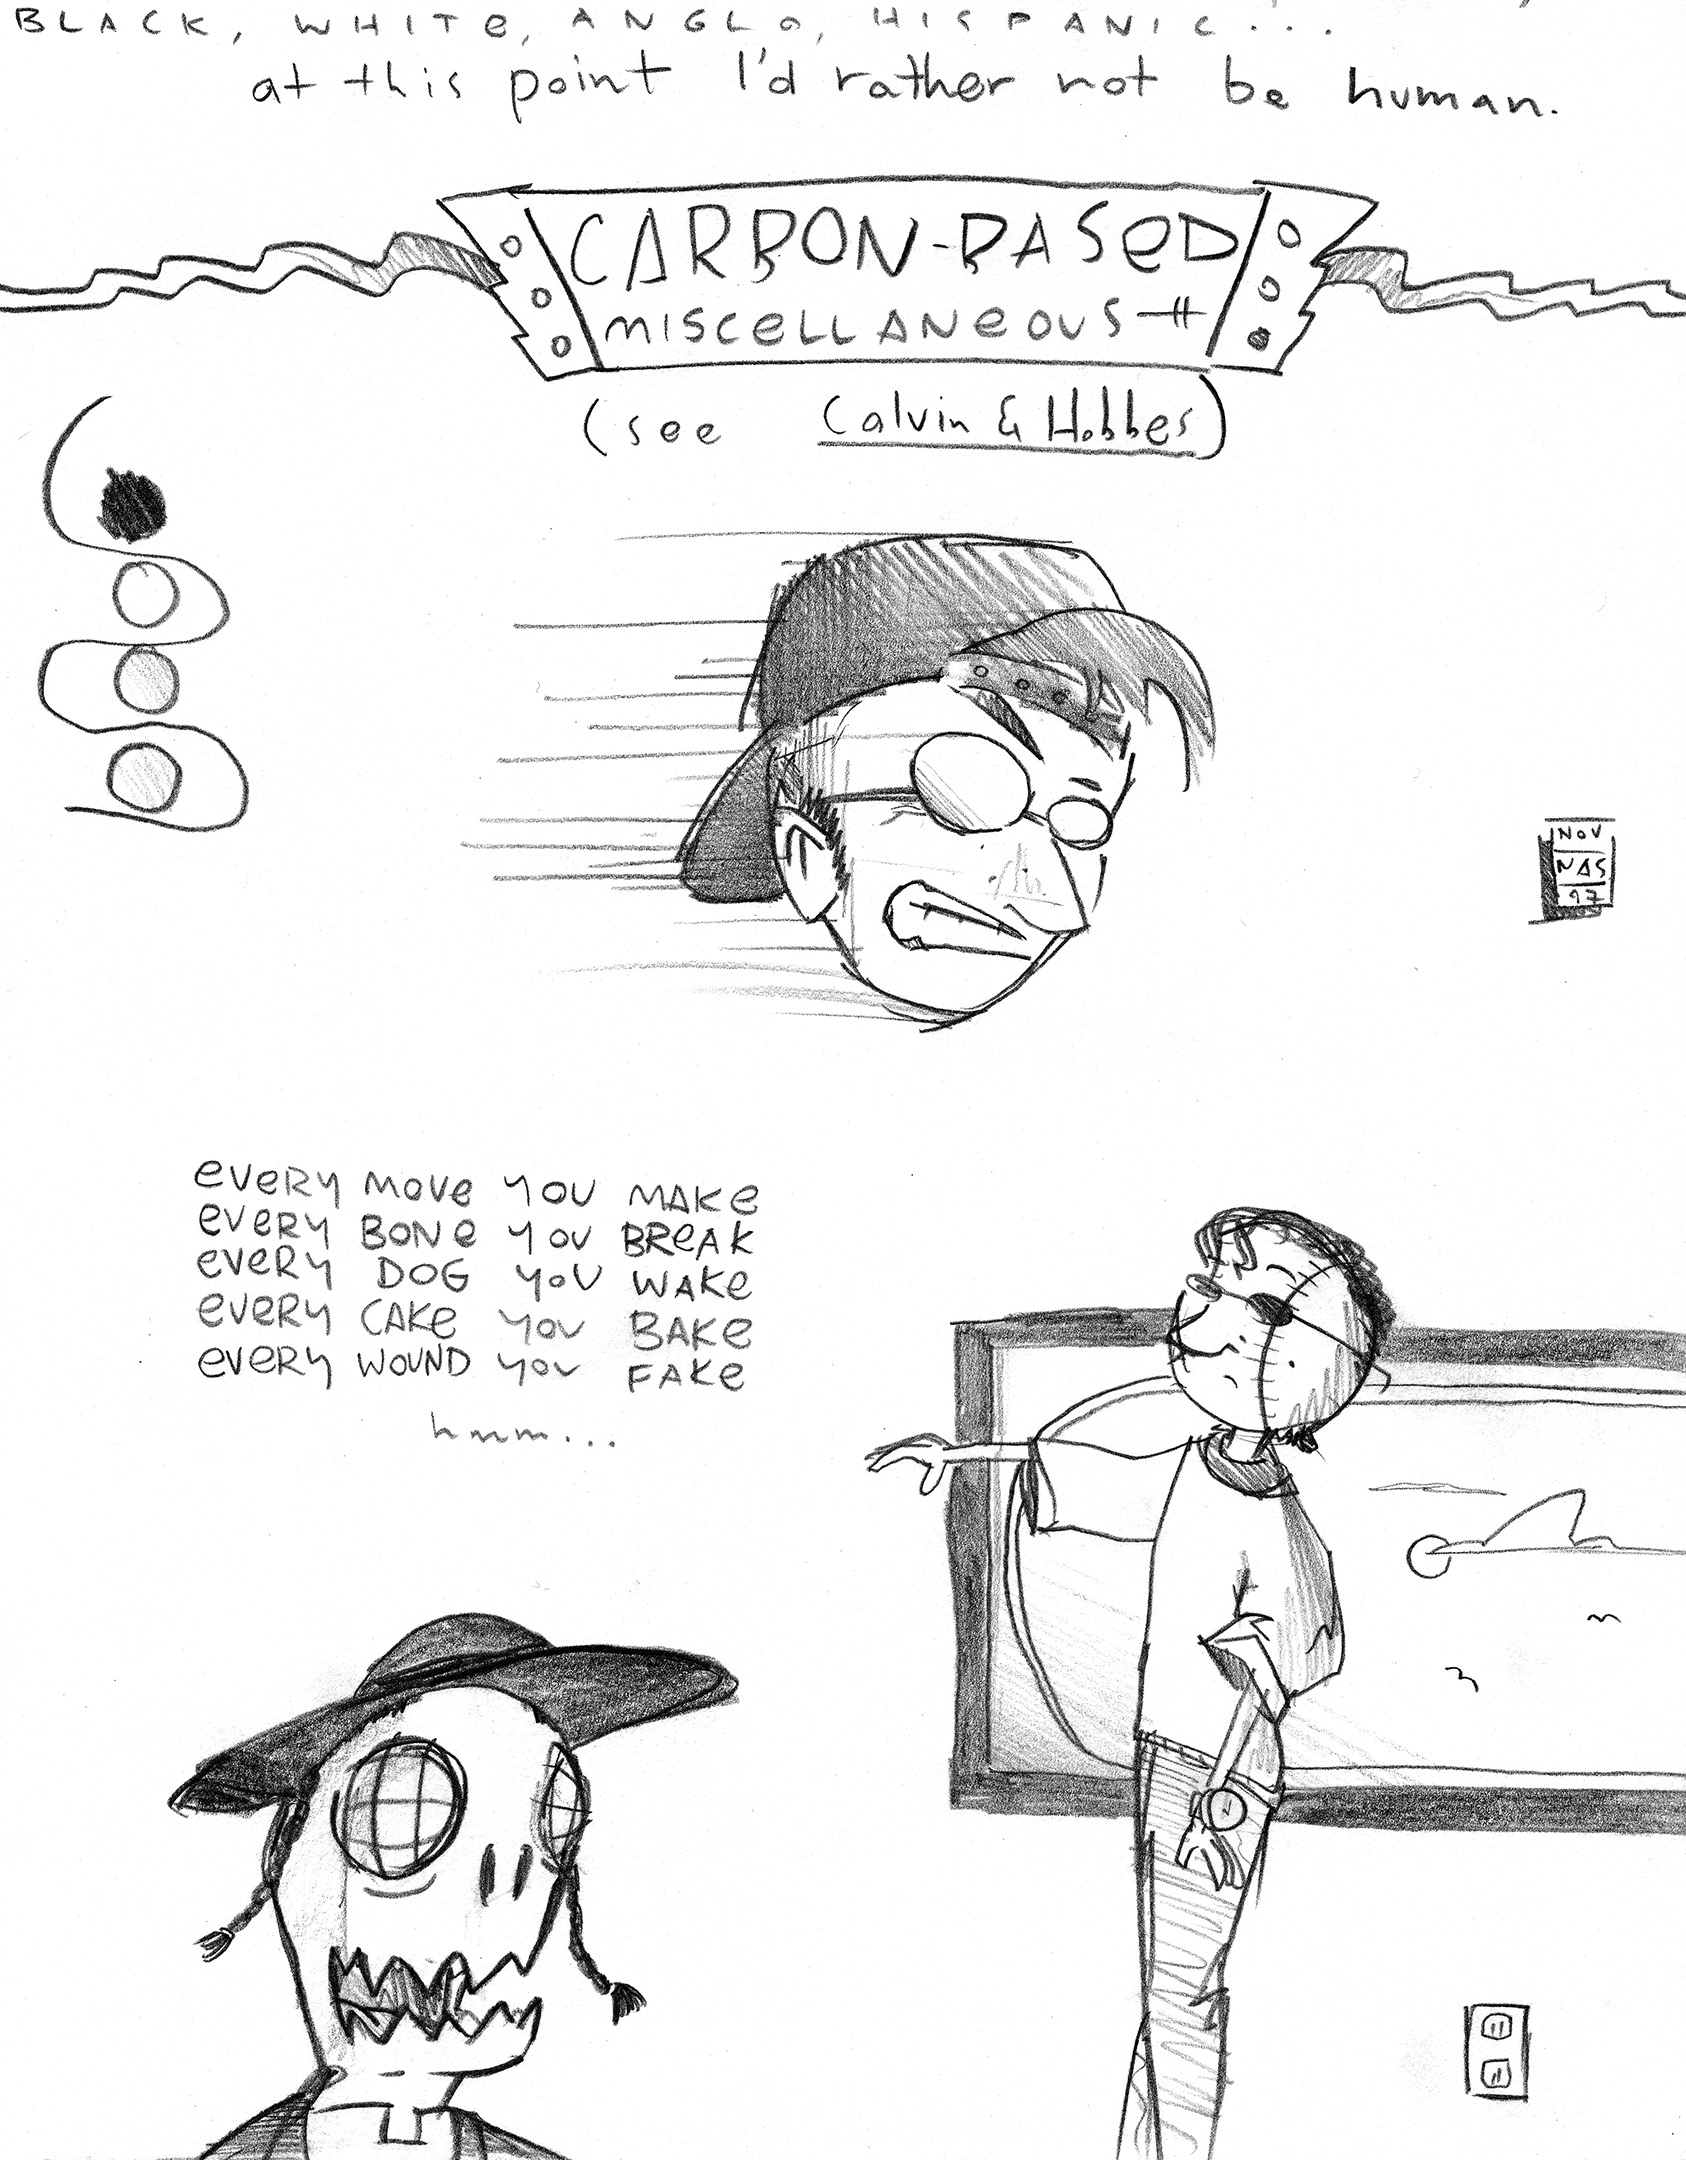 BLACK, WHITE, ANGLO, HISPANIC...
at this point I'd rather not be human.
CARBON-BASED
MISCELLANEOUS
(see Calvin & Hobbes)
NOV
NAS
97
EVERY MOVE YOU MAKE
EVERY BONE YOU BREAK
EVERY DOG YOU WAKE
EVERY CAKE YOU BAKE
EVERY WOUND YOU FAKE
hmm...